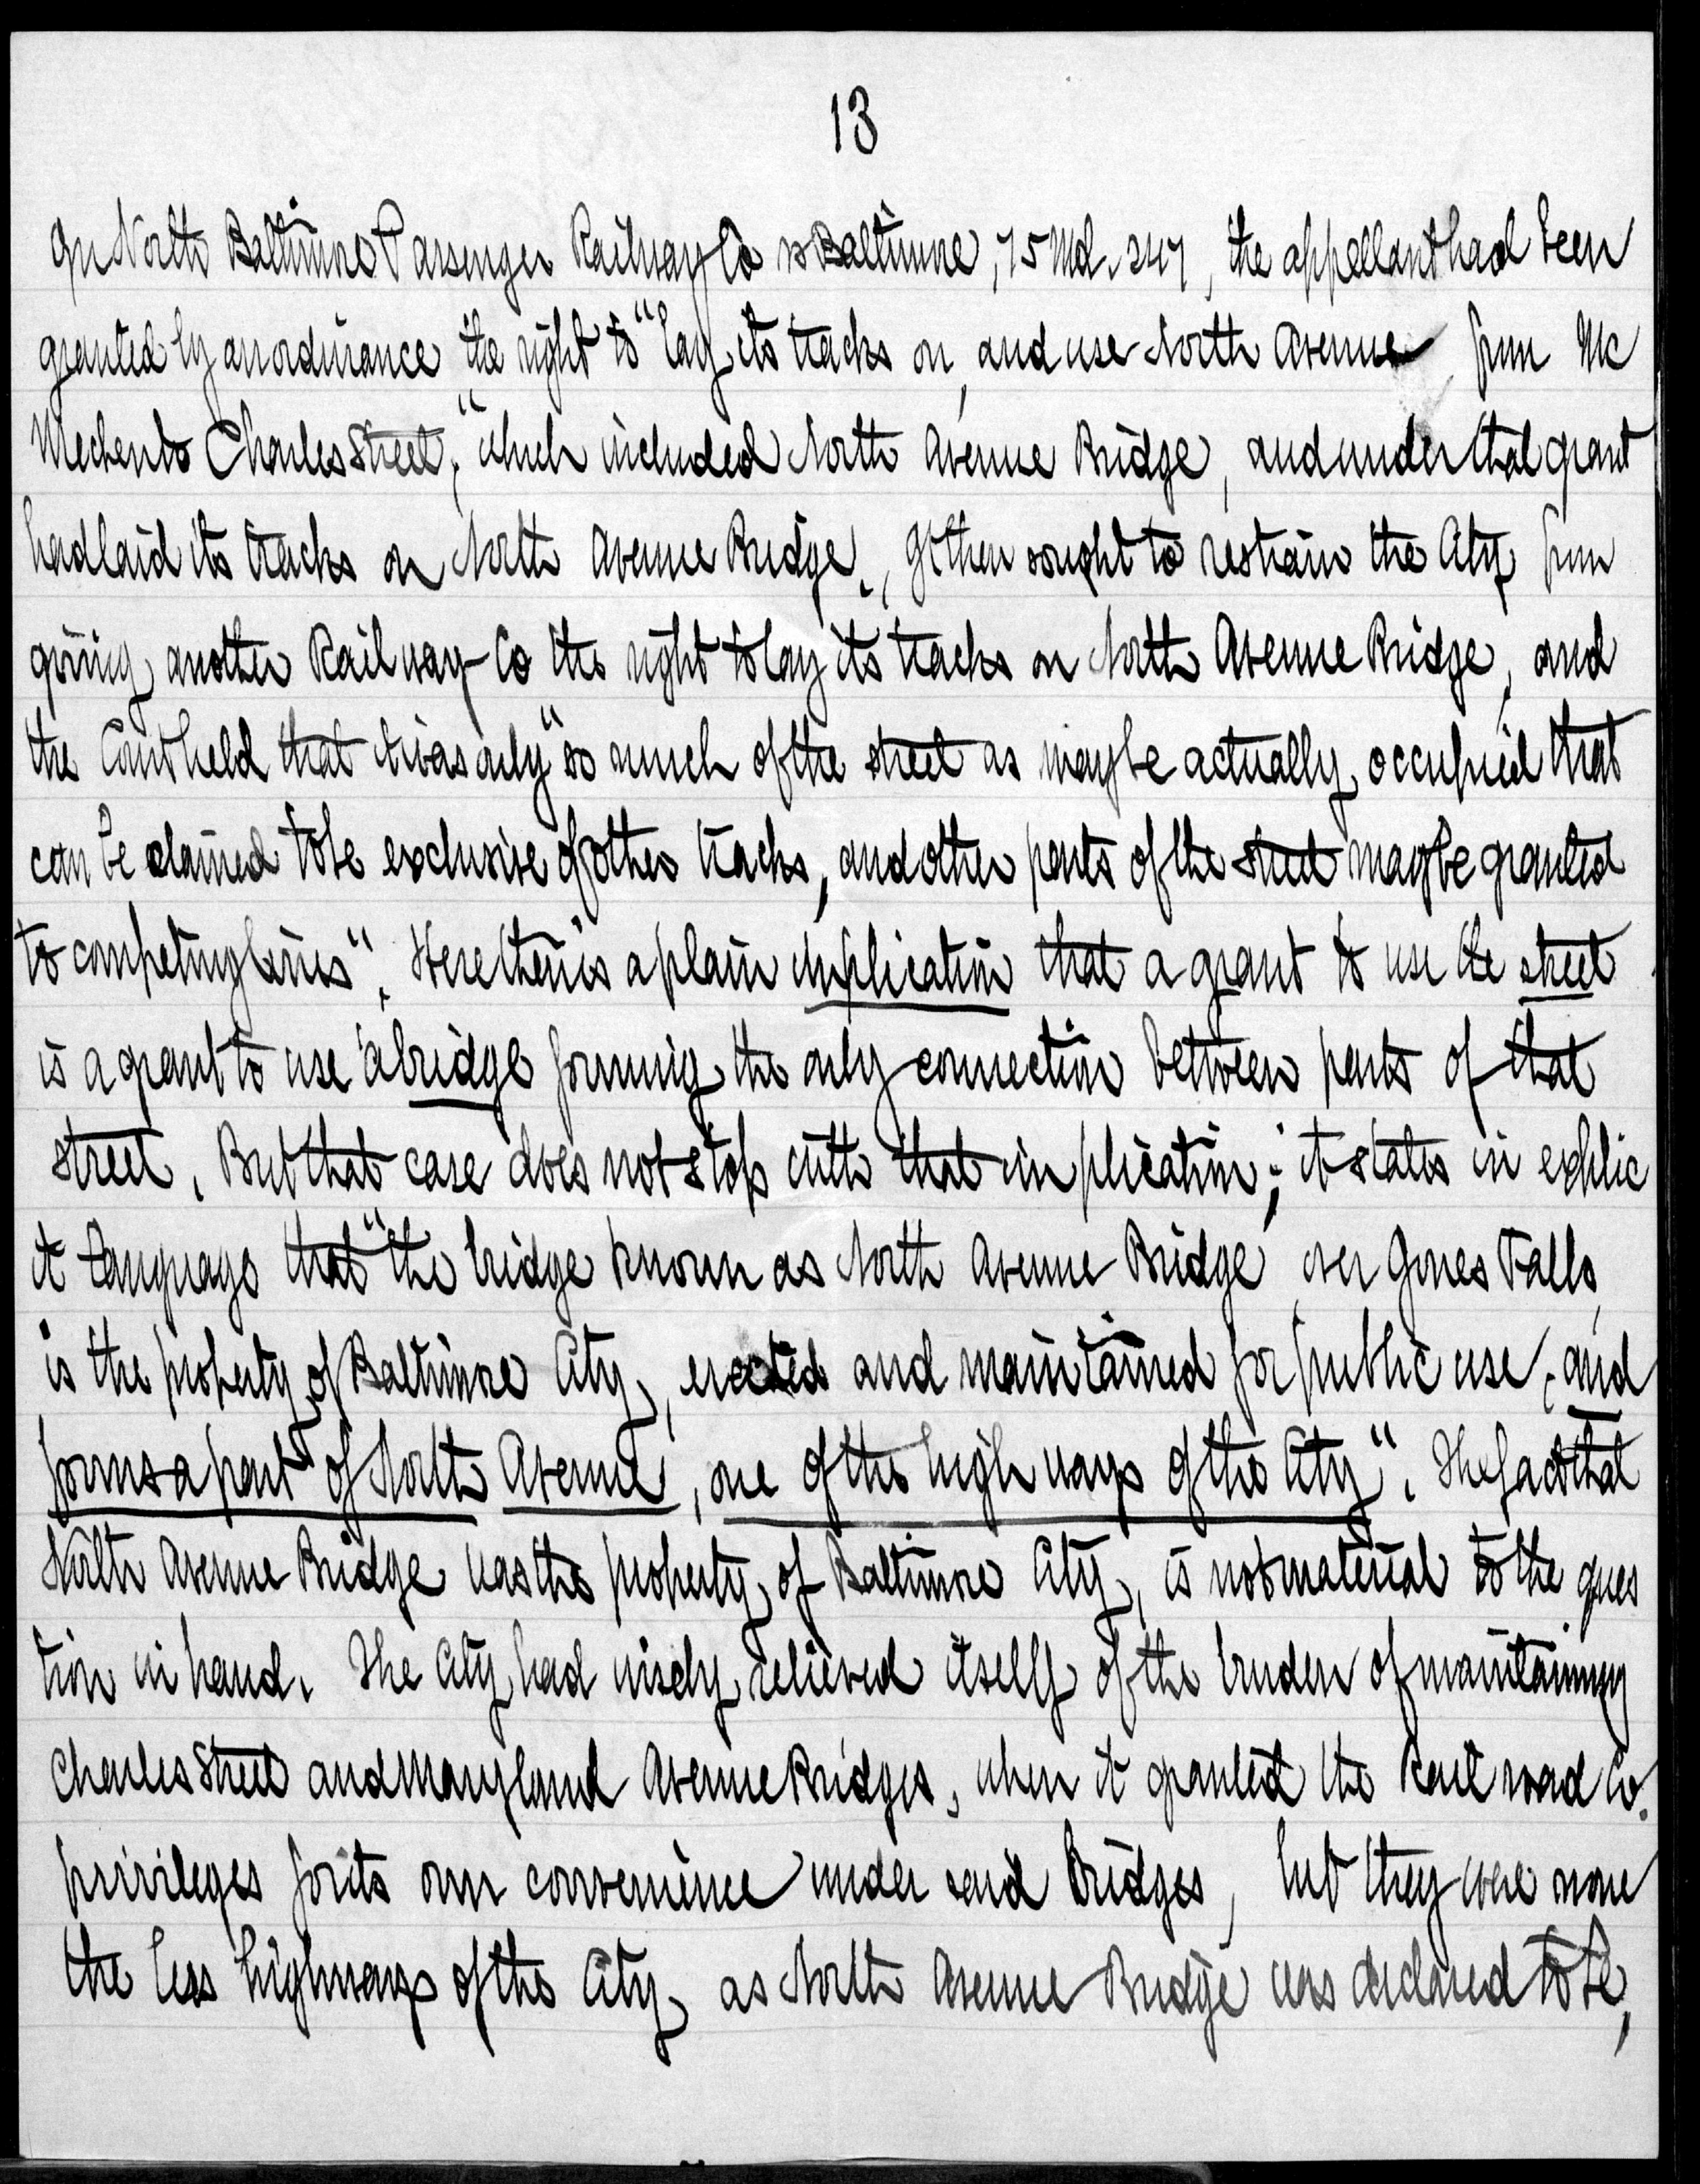 13
In North Baltimore Passenger Railway Co vs Baltimore, 75 Md. 247, the appellant had been
granted by an ordinance the right to "lay its tracks on, and use North Avenue from Mc
Mechen to Charles Street," which included North Avenue Bridge, and under that grant
had laid its tracks on North Avenue Bridge. It then sought to restrain the City from
giving another Railway Co the right to lay its tracks on North Avenue Bridge, and
the Court held that it was only "so much of the street as may be actually occupied that
can be claimed to be exclusive of other tracks, and other parts of the street may be granted
to competing lines". Here then is a plain implication that a grant to use the street
is a grant to use a bridge forming the only connection between parts of that
street. But that case does not stop with that implication; it states in explic
it language that "the bridge known as North Avenue Bridge, over Jones Falls,
is the property of Baltimore City, erected and maintained for public use, and
forms a part of North Avenue, one of the high ways of the City". The fact that
North Avenue Bridge was the property of Baltimore City, is not material to the ques
tion in hand. The City had wisely relieved itself of the burden of maintaining
Charles Street and Maryland Avenue Bridges, when it granted the Rail road Co.
privileges for its own convenience under said Bridges, but they were none
the less highways of the City, as North Avenue Bridge was declared to be,